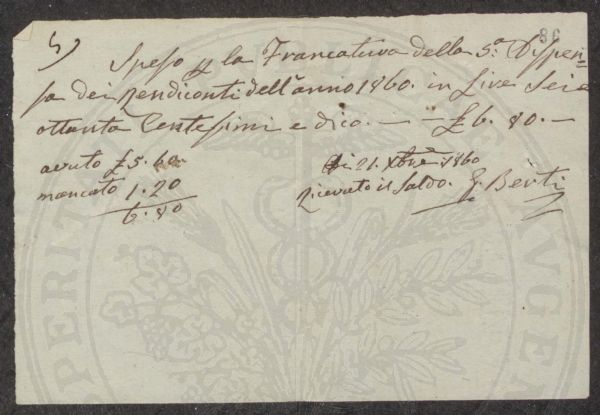 5)
86
Speso p la Francatura della 5.a Dispen=
sa dei Rendiconti dell'anno 1860. in Lire Sei e
ottanta Centessimi e dico. — — £ 6. 80. —
avuto £ 5. 60
mancato 1. 20
6. 80
Li 21. Xbre 1860
Ricevuto il Saldo. G. Berti
PERIT
AVGER